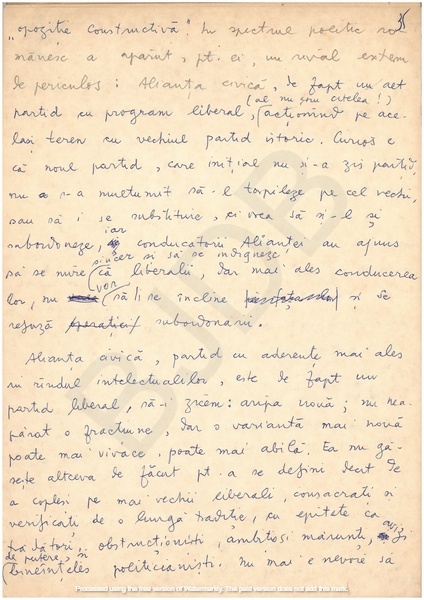 35
„opoziție constructivă". În spectrul politic ro-
mânesc a apărut, pt. ei, un rival extrem
de periculos: Alianța civică, de fapt un alt
partid cu program liberal, (al nu știu câtelea!) acționînd pe ace-
lași teren cu vechiul partid istoric. Curios e
că noul partid, care inițial nu și-a zis partid,
nu s-a mulțumit să-l torpileze pe cel vechi,
sau să i se substituie, ci vrea să și-l și
subordoneze, iar conducătorii Alianței au ajuns
să se mire sincer și să se indigneze că liberalii, dar mai ales conducerea
lor, nu vor să li se încline și se
refuză subordonării.
Alianța civică, partid cu aderențe mai ales
în rîndul intelectualilor, este de fapt un
partid liberal, să-i zicem: aripa nouă; nu nea-
părat o fracțiune, dar o variantă mai nouă
poate mai vivace, poate mai abilă. Ea nu gă-
sește altceva de făcut pt. a se defini decît de
a copleși pe mai vechii liberali, consacrați și
verificați de o lungă tradiție, cu epitete ca
trădători, obstrucționiști, ambițioși mărunți, avizi și
de putere, și bineînțeles politicianiști. Nu mai e nevoie să
SJDB
Processed using the free version of Watermarkly. The paid version does not add this mark.